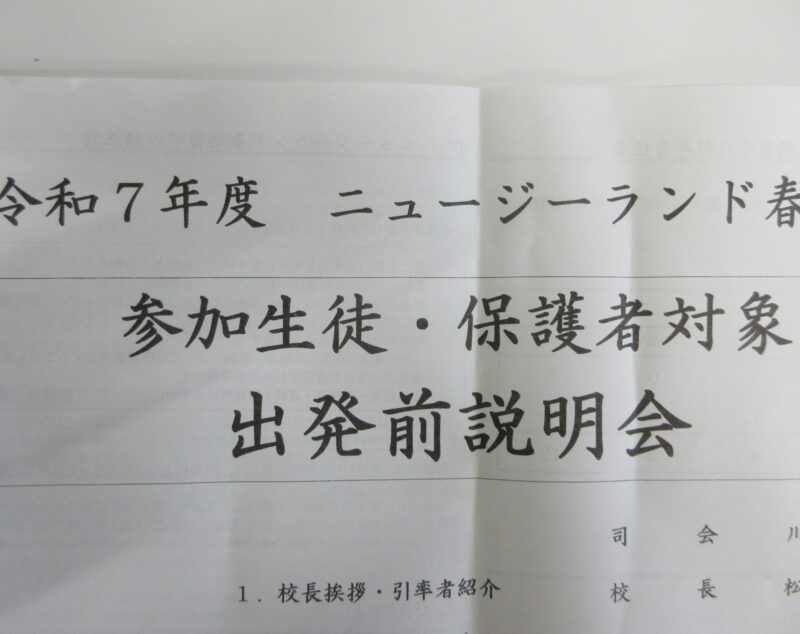 令和７年度　ニュージーランド春
参加生徒・保護者対象
出発前説明会
司　会　川
１．校長挨拶・引率者紹介　校　長　松